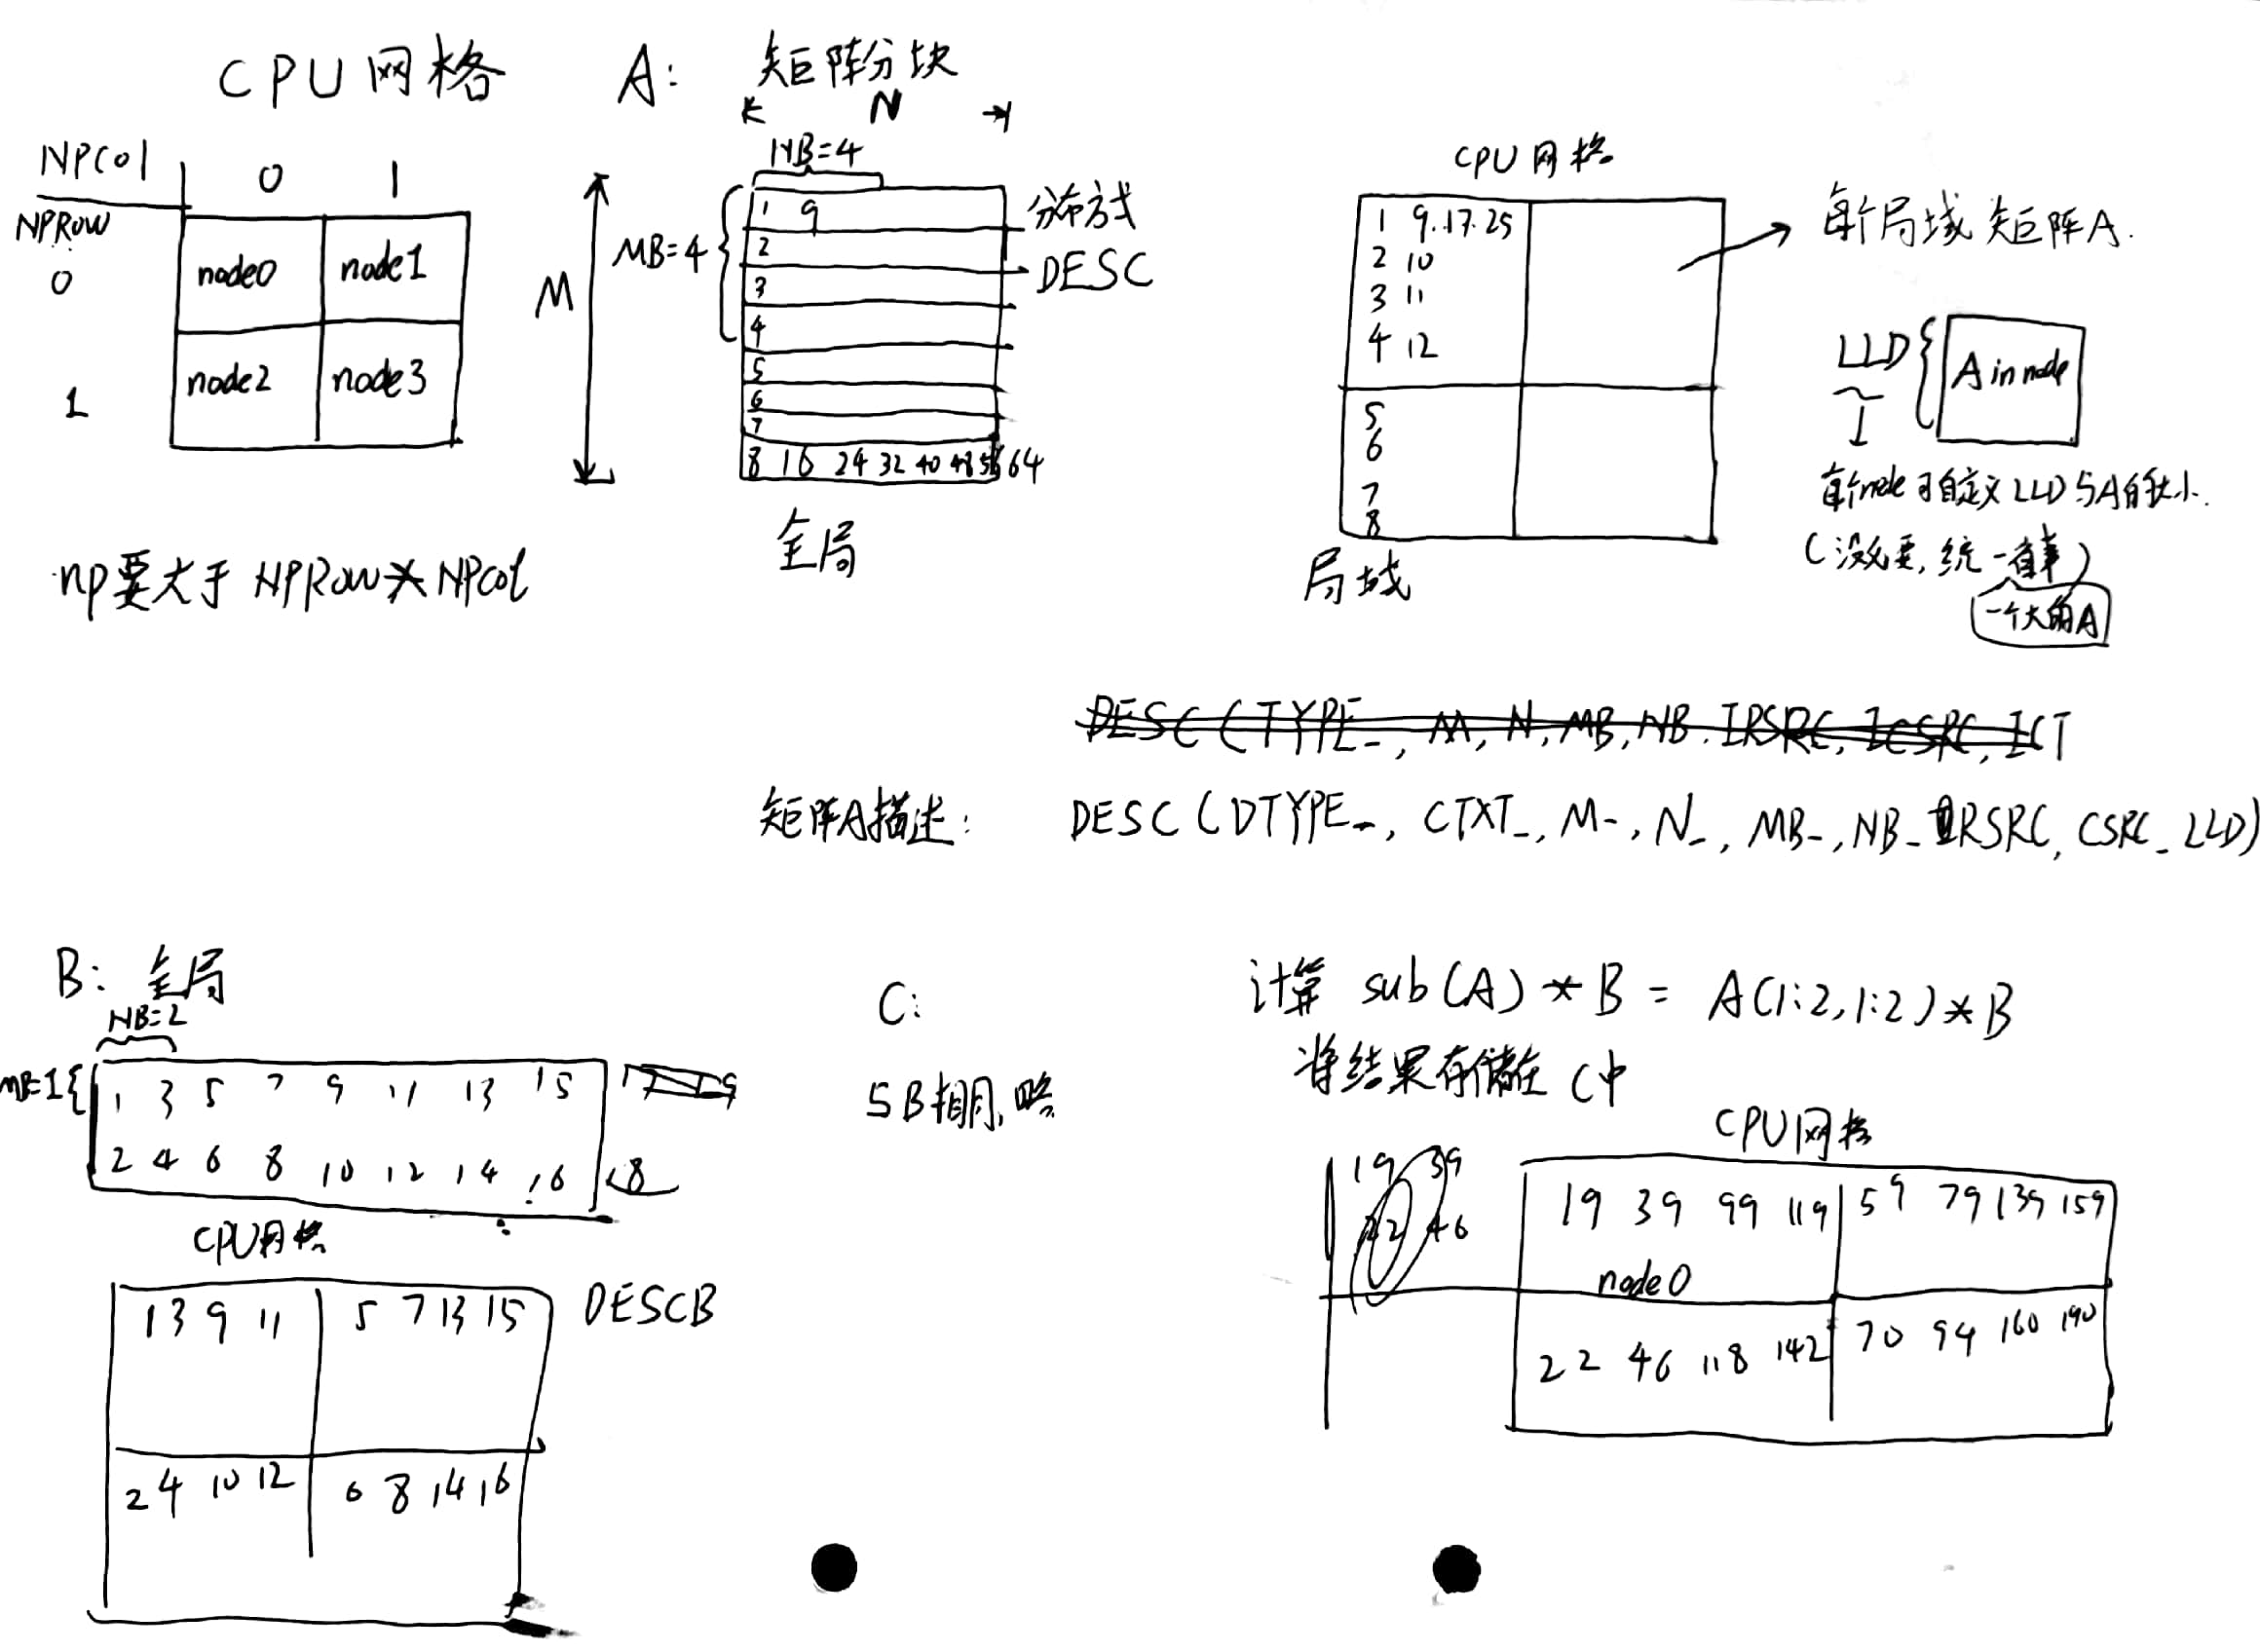 CPU网格
NPCol
0 1
NPROW
0
node0 node1
1
node2 node3
np要大于 NPRow*NPcol
A: 矩阵分块
N
NB=4
MB=4
M
1 9
2
3
4
5
6
7
8 16 24 32 40 48 56 64
分布方式
DESC
全局
CPU网格
1 9.17.25
2 10
3 11
4 12
5
6
7
8
局域
每个局域矩阵A.
LLD
A in node
每个node可自定义LLD与A的大小.
(没必要,统一省事)
一个大的A
DESC(TYPE_, M, N, MB, NB. IRSRC, ICSRC, ICT
矩阵A描述: DESC(DTYPE_, CTXT_, M_, N_, MB_, NB_ RSRC, CSRC_ LLD)
B: 全局
NB=2
MB=1
1 3 5 7 9 11 13 15
2 4 6 8 10 12 14 16
CPU网格
1 3 9 11 5 7 13 15
2 4 10 12 6 8 14 16
DESCB
C:
与B相同,略
计算 sub(A)*B = A(1:2,1:2)*B
将结果存储在C中
CPU网格
19 39
22 46
19 39 99 119 59 79 139 159
node0
22 46 118 142 70 94 160 190